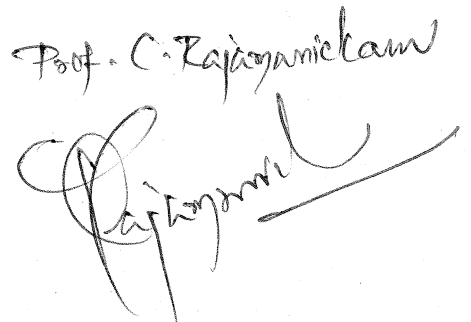 Prof. C. Rajamanickam
C Rajamanick